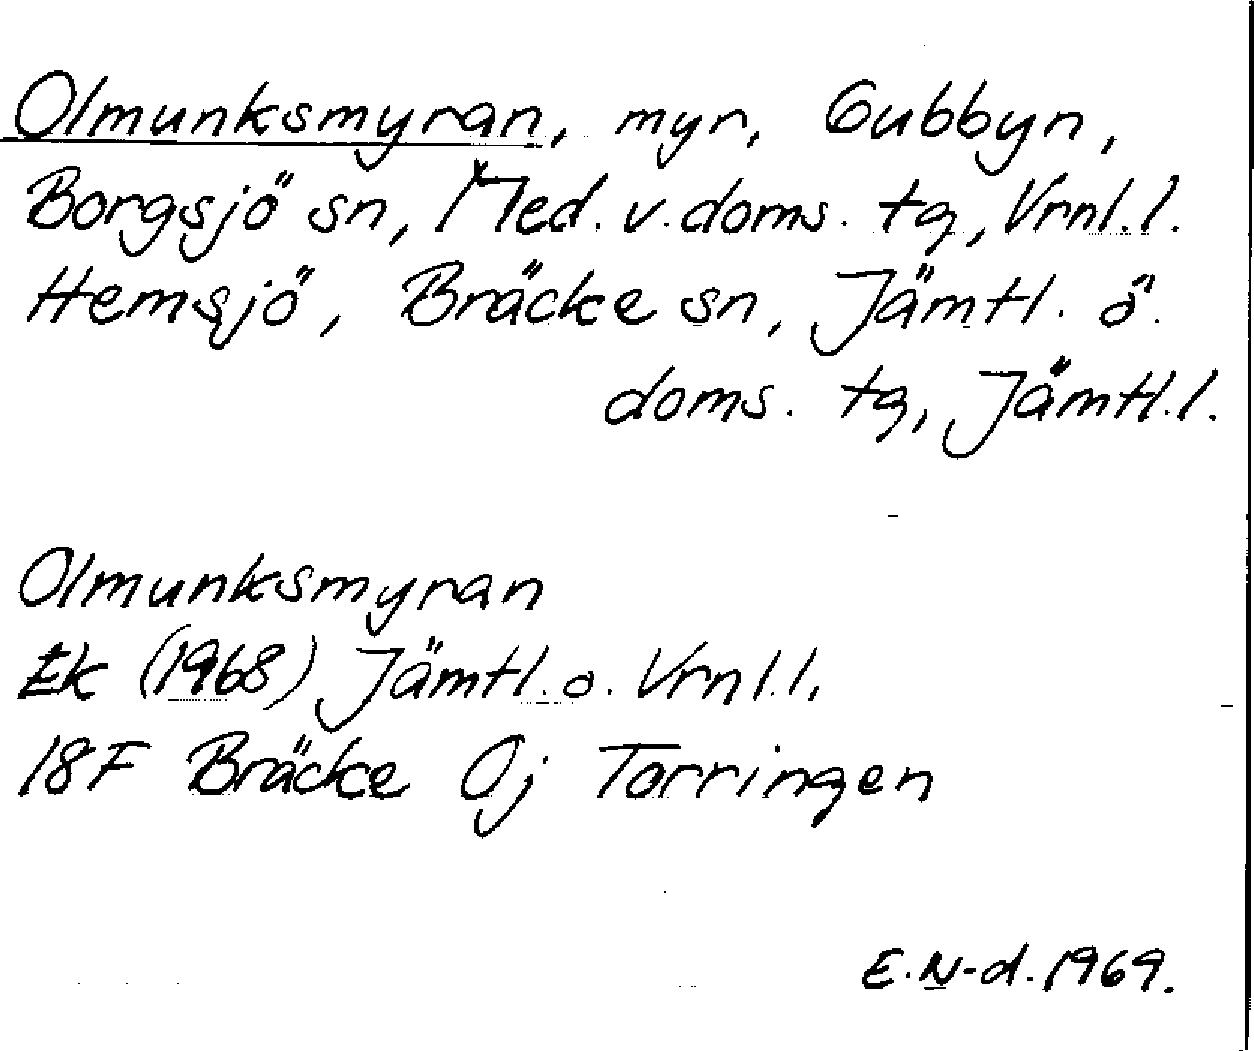 Olmunksmyran, myr, Gubbyn,
Borgsjö sn, Med. v. doms. tg, Vrnl. l.
Hemsjö, Bräcke sn, Jämtl. ö.
doms. tg, Jämtl. l.
Olmunksmyran
Ek (1968) Jämtl. o. Vrnl. l.
18F Bräcke 0j Torringen
E. N-d. 1969.